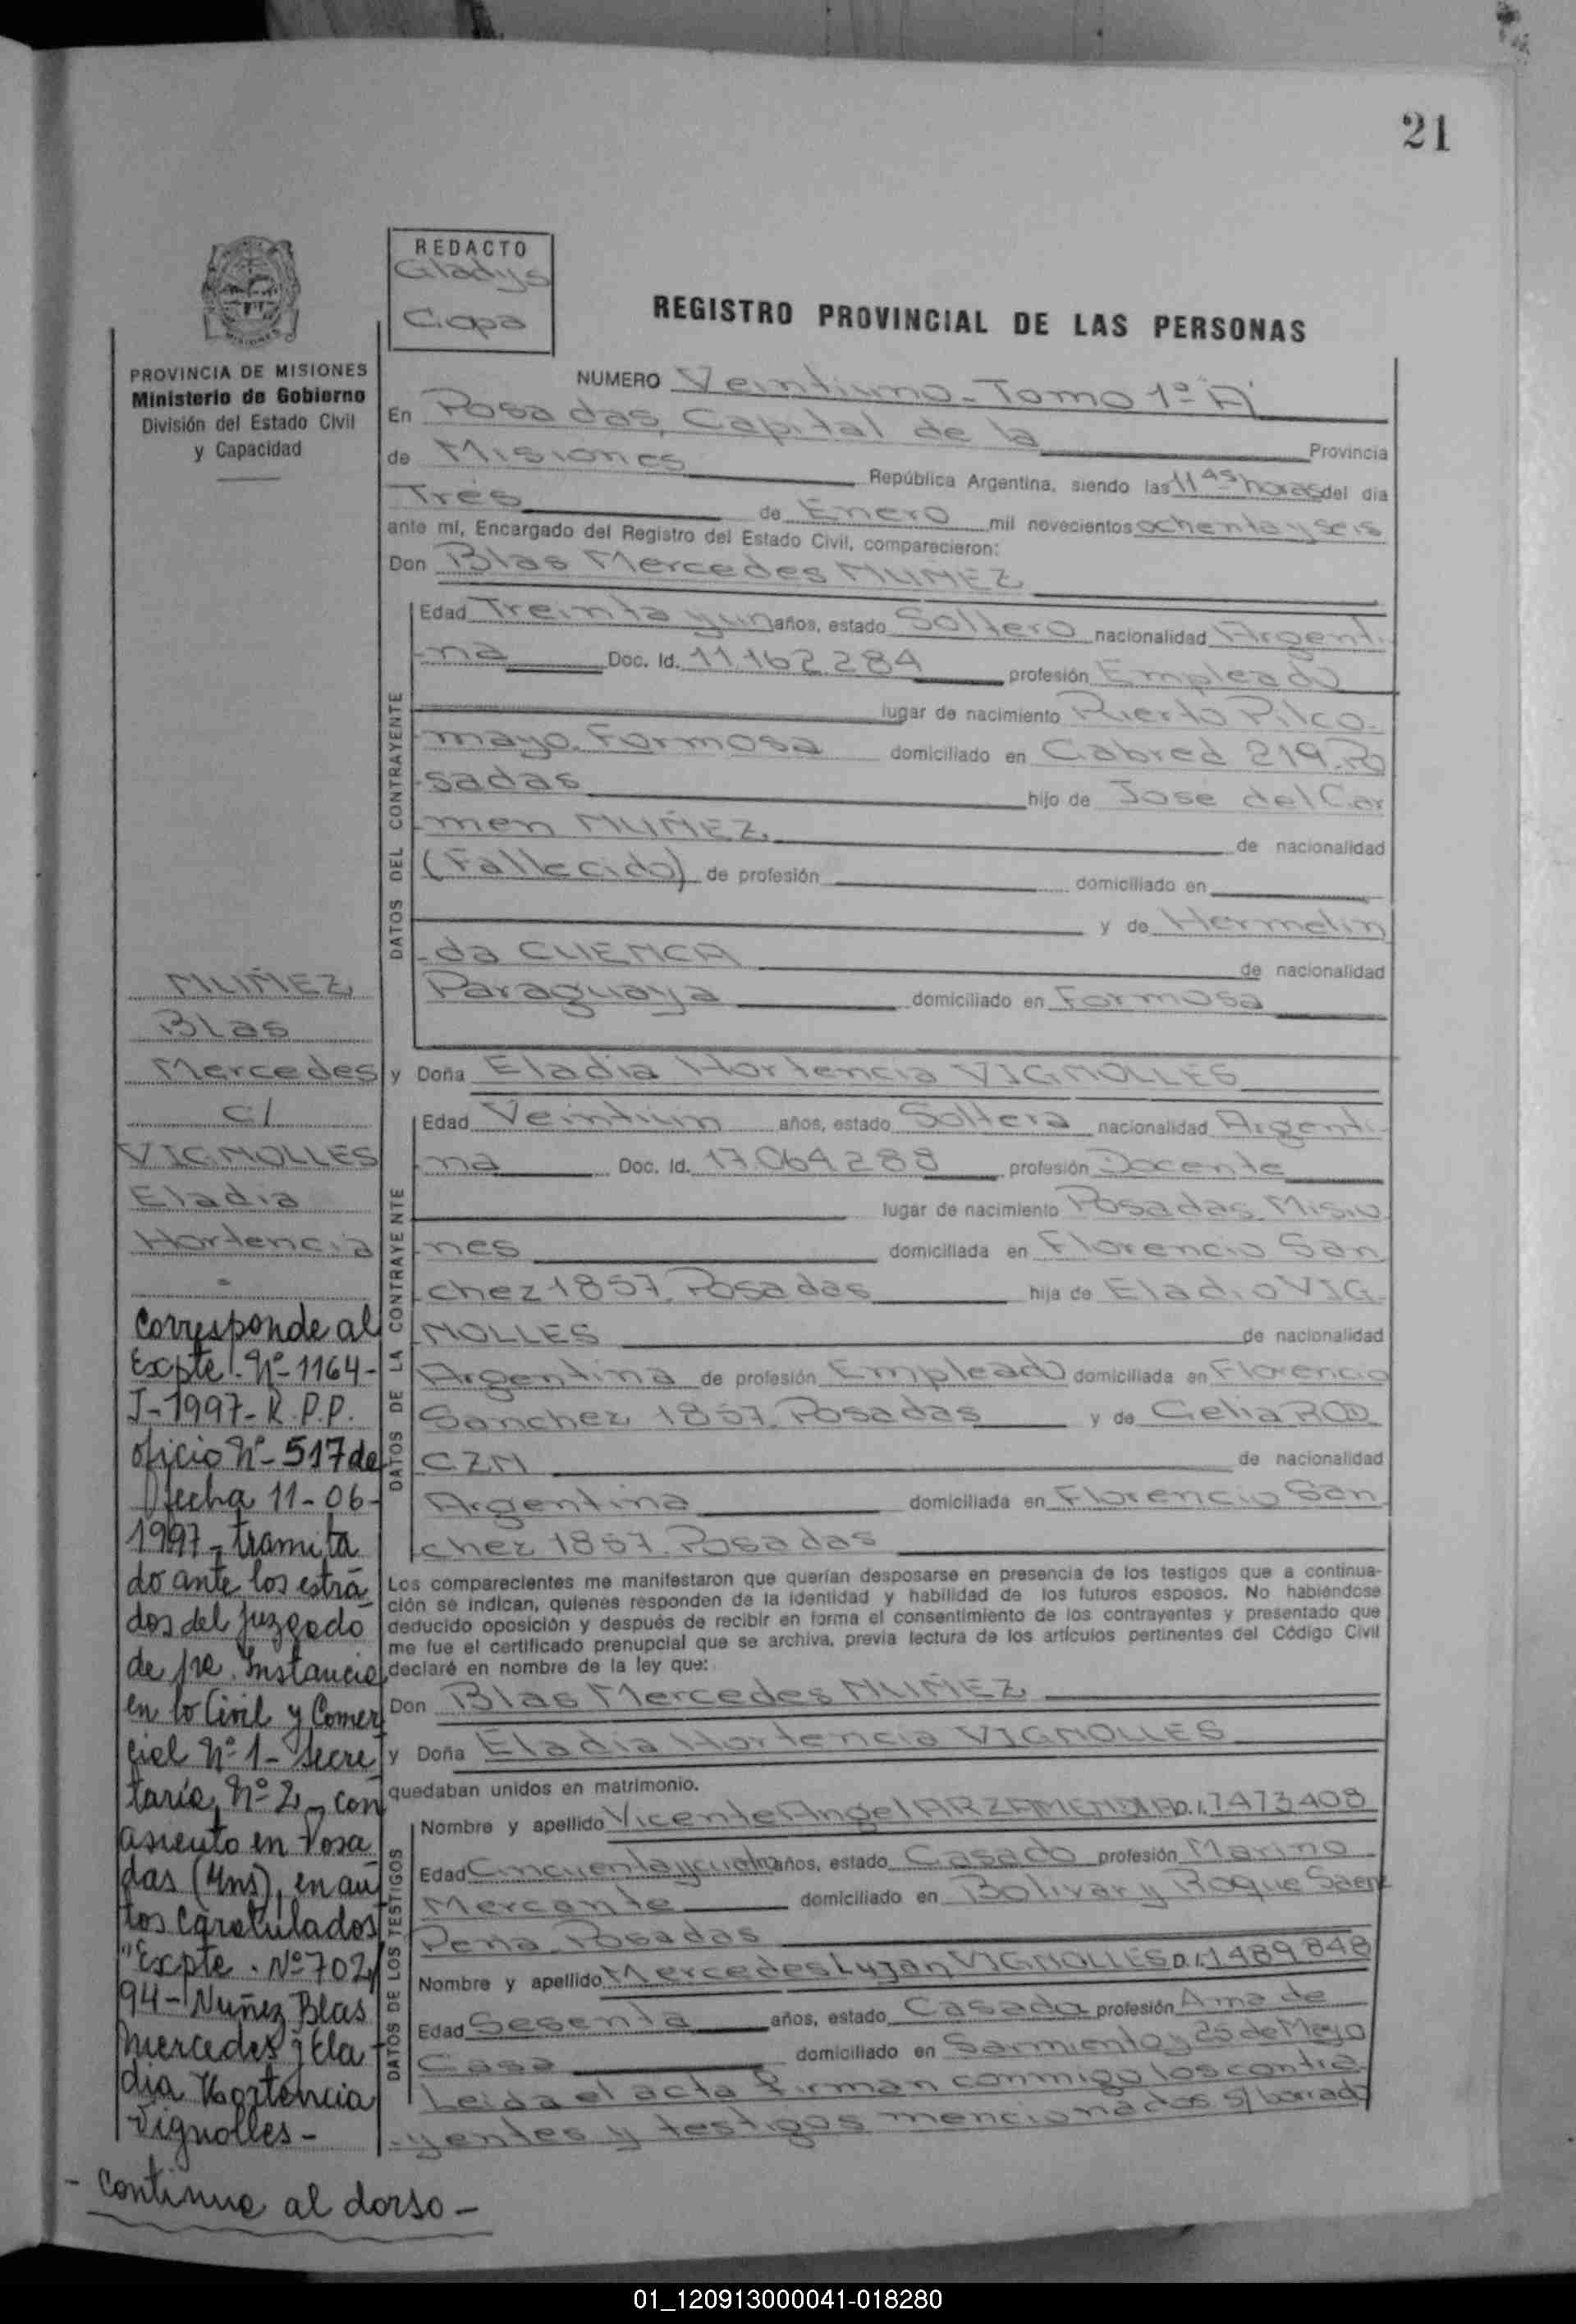 21
REDACTO
Gladys
Copa
REGISTRO PROVINCIAL DE LAS PERSONAS
PROVINCIA DE MISIONES
Ministerio de Gobierno
División del Estado Civil
y Capacidad
NUMERO Veintiuno - Tomo 1º "A"
En Posadas, Capital de la Provincia
de Misiones República Argentina, siendo las 11 45 horas del día
Tres de Enero mil novecientos ochenta y seis
ante mí, Encargado del Registro del Estado Civil, comparecieron:
Don Blas Mercedes NUÑEZ
DATOS DEL CONTRAYENTE
Edad Treinta y un años, estado Soltero nacionalidad Argenti-
na Doc. Id. 11.162.284 profesión Empleado
lugar de nacimiento Puerto Pilco-
mayo. Formosa domiciliado en Cabred 219. Po
-sadas hijo de Jose del Car
-men NUÑEZ. de nacionalidad
(Fallecido) de profesión domiciliado en
y de Hermelin
-da CUENCA de nacionalidad
Paraguaya domiciliado en Formosa
y Doña Eladia Hortencia VIGNOLLES
DATOS DE LA CONTRAYENTE
Edad Veintiún años, estado Soltera nacionalidad Argenti-
-na Doc. Id. 17.064.288 profesión Docente
lugar de nacimiento Posadas Misio
-nes domiciliada en Florencio San
-chez 1857. Posadas hija de Eladio VIG-
NOLLES de nacionalidad
Argentina de profesión Empleado domiciliada en Florencio
Sanchez 1857. Posadas y de Celia
de nacionalidad
Argentina domiciliada en Florencio San
chez 1857. Posadas
Los comparecientes me manifestaron que querían desposarse en presencia de los testigos que a continua-
ción se indican, quienes responden de la identidad y habilidad de los futuros esposos. No habiéndose
deducido oposición y después de recibir en forma el consentimiento de los contrayentes y presentado que
me fue el certificado prenupcial que se archiva, previa lectura de los artículos pertinentes del Código Civil
declaré en nombre de la ley que:
Don Blas Mercedes NUÑEZ
y Doña Eladia Hortencia VIGNOLLES
quedaban unidos en matrimonio.
DATOS DE LOS TESTIGOS
Nombre y apellido Vicente Angel ARZAMENDIA D.I. 7473408
Edad Cincuenta y cuatro años, estado Casado profesión Marino
Mercante domiciliado en Bolivar y Roque Saenz
Peña. Posadas
Nombre y apellido Mercedes Lujan VIGNOLLES D.I. 1489848
Edad Sesenta años, estado Casada profesión Ama de
Casa domiciliado en Sarmiento y 25 de Mayo
Leida el acta firman conmigo los contra-
-yentes y testigos mencionados s/ borrado
NUÑEZ
Blas
Mercedes
c/
VIGNOLLES
Eladia
Hortencia
Corresponde al
Expte. Nº-1164-
J-1997-R.P.P.
oficio Nº-517 de
fecha 11-06-
1997-tramita
do ante los estra
dos del Juzgado
de 1ra. Instancia
en lo Civil y Comer
cial Nº1- Secre
taría, Nº2- con
asiento en Posa
das (Mns), en au
tos caratulados
"Expte. Nº702/
94-Nuñez Blas
Mercedes y Ela
dia Hortencia
Vignolles-
-continua al dorso-
01_120913000041-018280